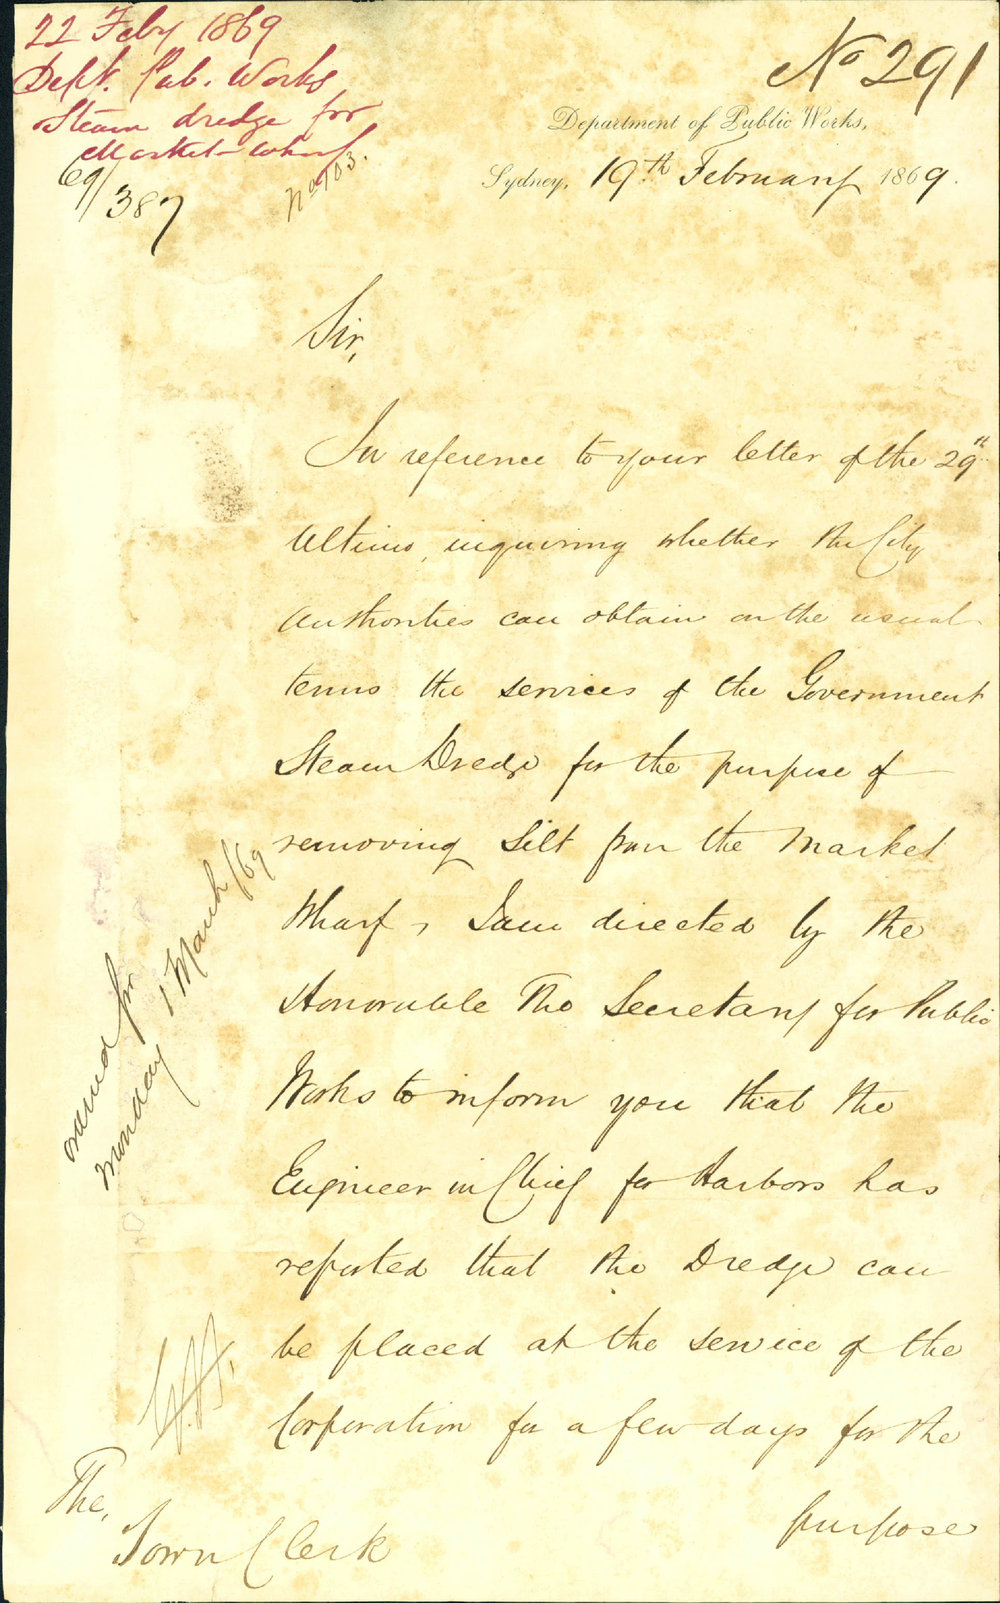 22 Feby 1869
Dept. Pub. Works
Steam dredge for
Market Wharf
69/387
No 103.
No 291
Department of Public Works,
Sydney, 19th February 1869.
Sir,
In reference to your letter of the 29th
Ultimo, inquiring whether the City
Authorities can obtain on the usual
terms the services of the Government
Steam Dredge for the purpose of
removing Silt from the Market
Wharf, I am directed by the
Honorable The Secretary for Public
Works to inform you that the
Engineer in Chief for Harbors has
reported that the Dredge can
be placed at the service of the
Corporation for a few days for the
purpose
for
Monday 1 March/69
The,
Town Clerk